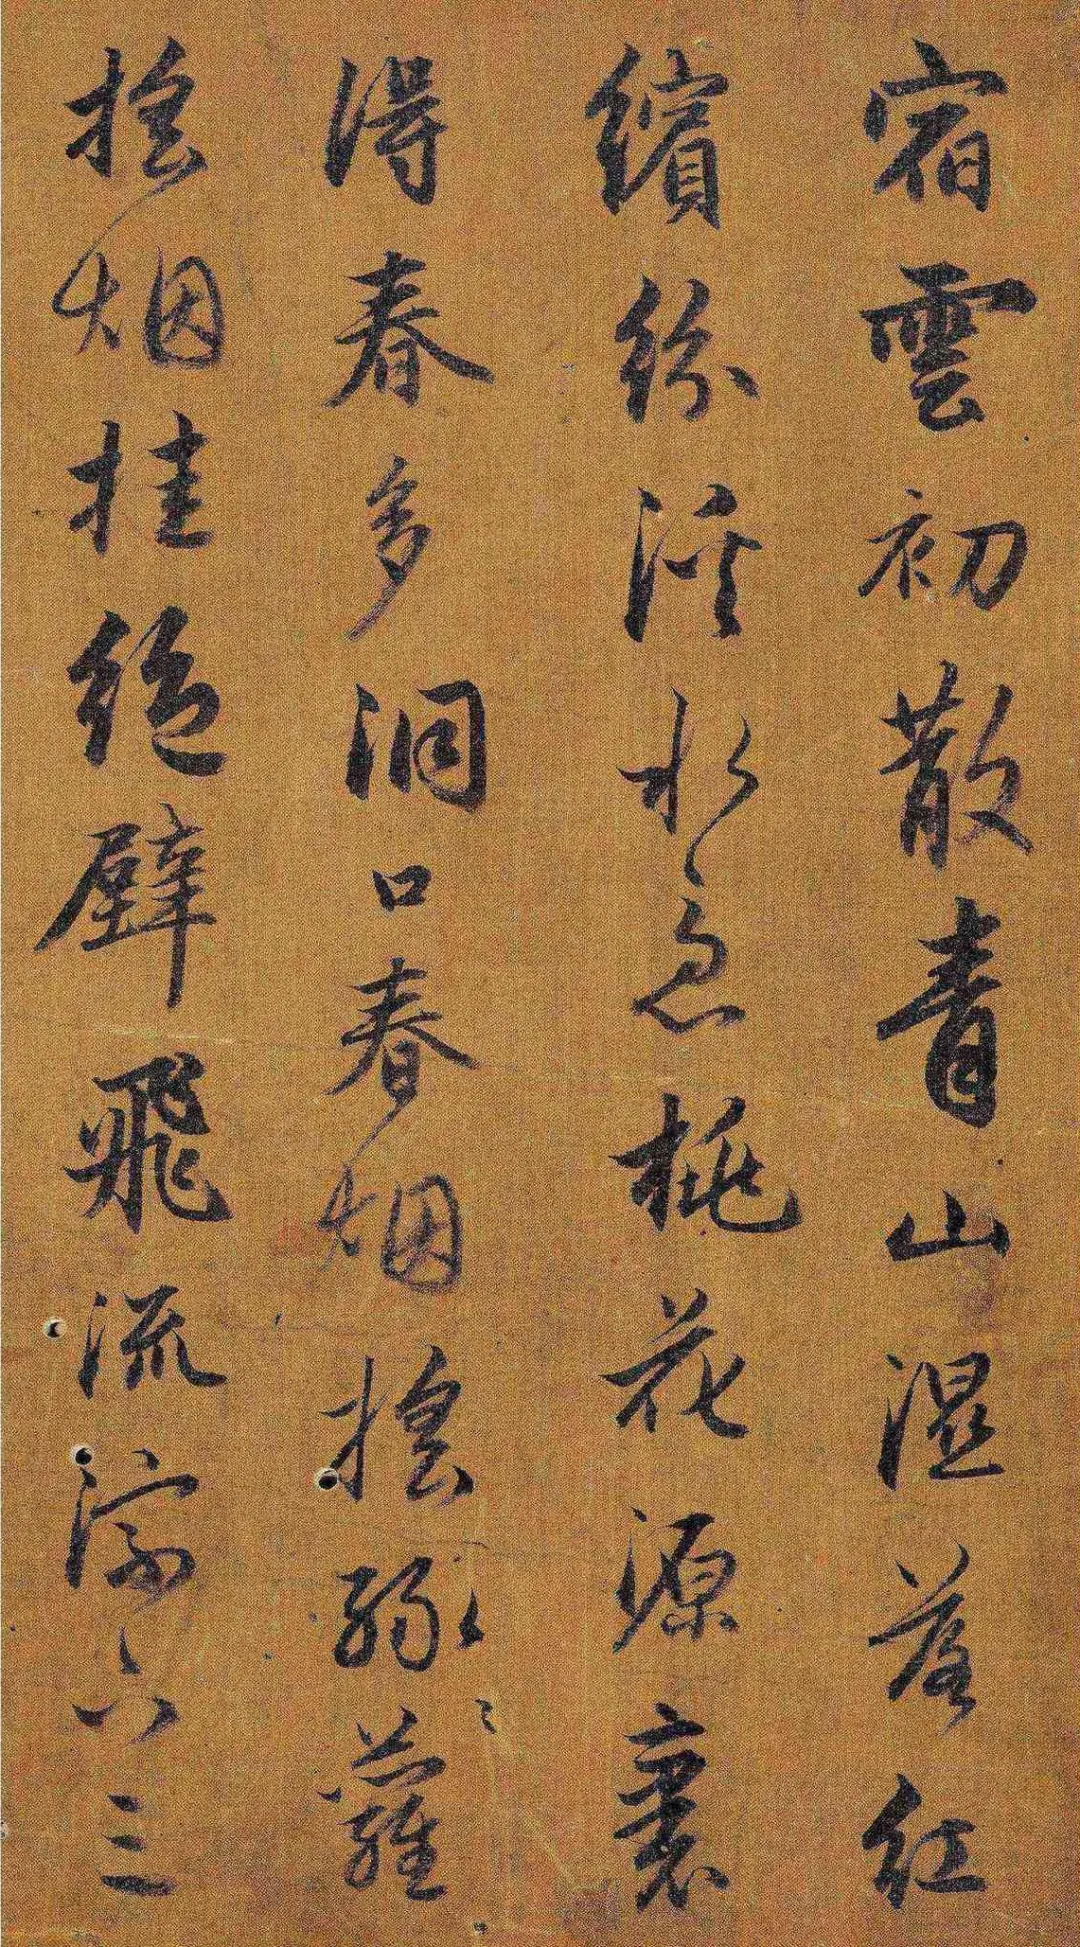 宿雲初散青山濕落紅
繽紛溪水急桃花源裏
得春多洞口春烟搖綠〻蘿〻
搖烟挂絕壁飛流淙下三